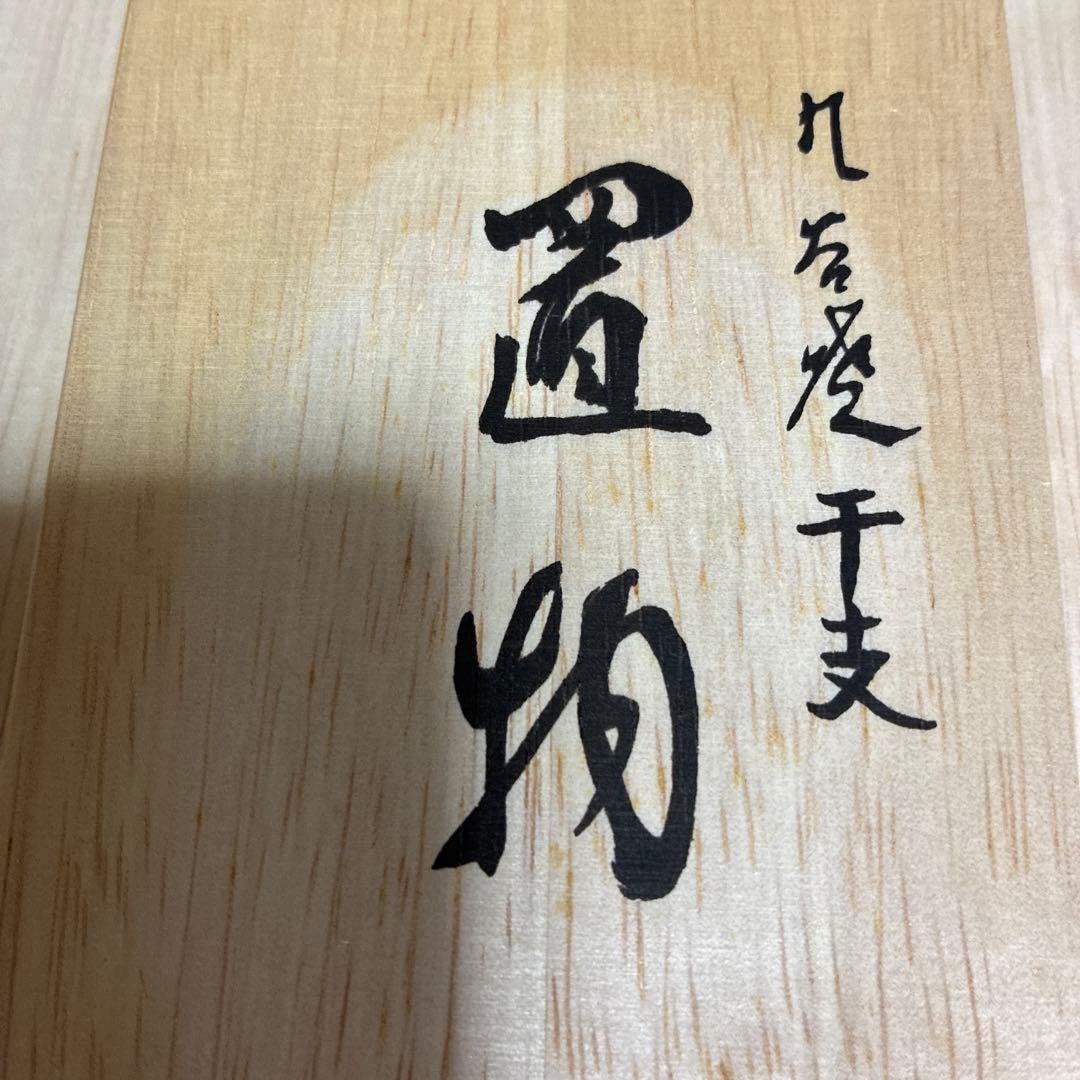 九谷焼干支
置物